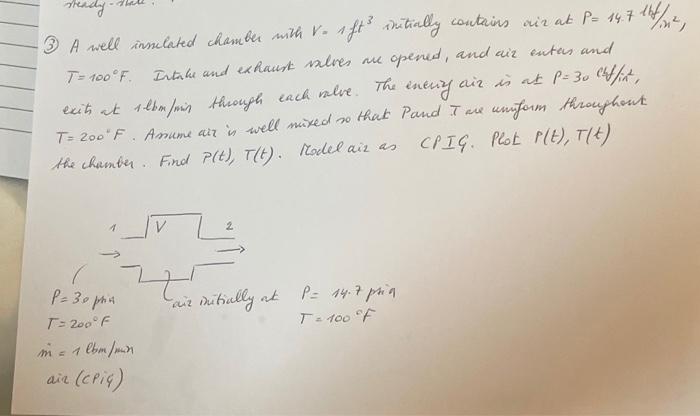 steady-state
③ A well insulated chamber with V= 1 ft³ initially contains air at P= 14.7 lbf/in²,
T=100°F. Intake and exhaust valves are opened, and air enters and
exits at 1 lbm/min through each valve. The enering air is at P=30 lbf/in²,
T=200°F. Assume air is well mixed so that P and T are uniform throughout
the chamber. Find P(t), T(t). Model air as CPIG. Plot P(t), T(t)
1 V 2
P=30 psia
T=200°F
ṁ = 1 lbm/min
air (CPIG)
air initially at P= 14.7 psia
T=100°F